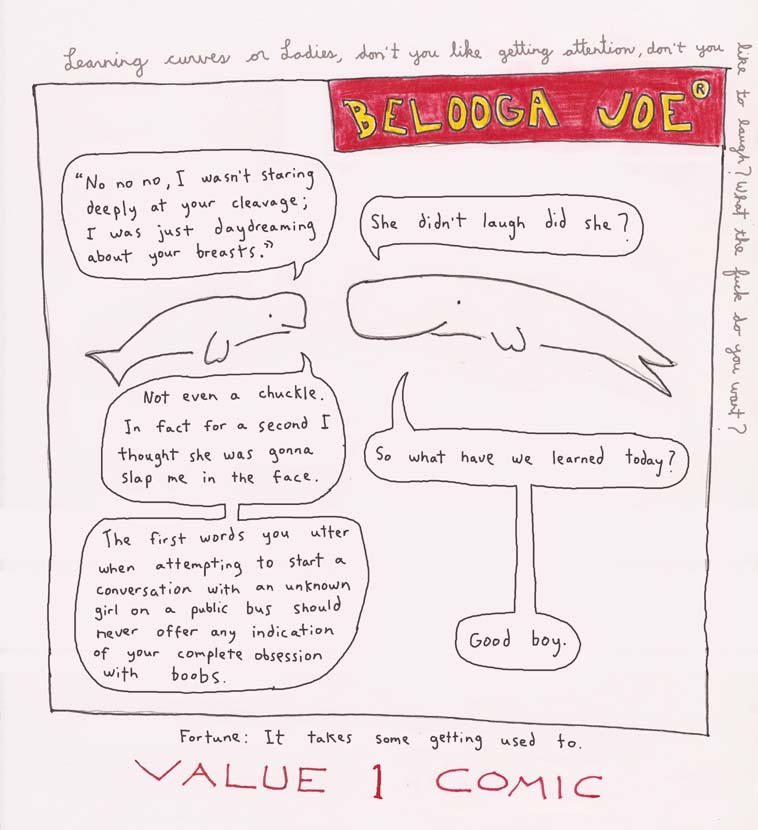 Learning curves or Ladies, don't you like getting attention, don't you
like to laugh? What the fuck do you want?
BELOOGA JOE®
"No no no, I wasn't staring
deeply at your cleavage;
I was just daydreaming
about your breasts."
She didn't laugh did she?
Not even a chuckle.
In fact for a second I
thought she was gonna
slap me in the face.
So what have we learned today?
The first words you utter
when attempting to start a
conversation with an unknown
girl on a public bus should
never offer any indication
of your complete obsession
with boobs.
Good boy.
Fortune: It takes some getting used to.
VALUE 1 COMIC